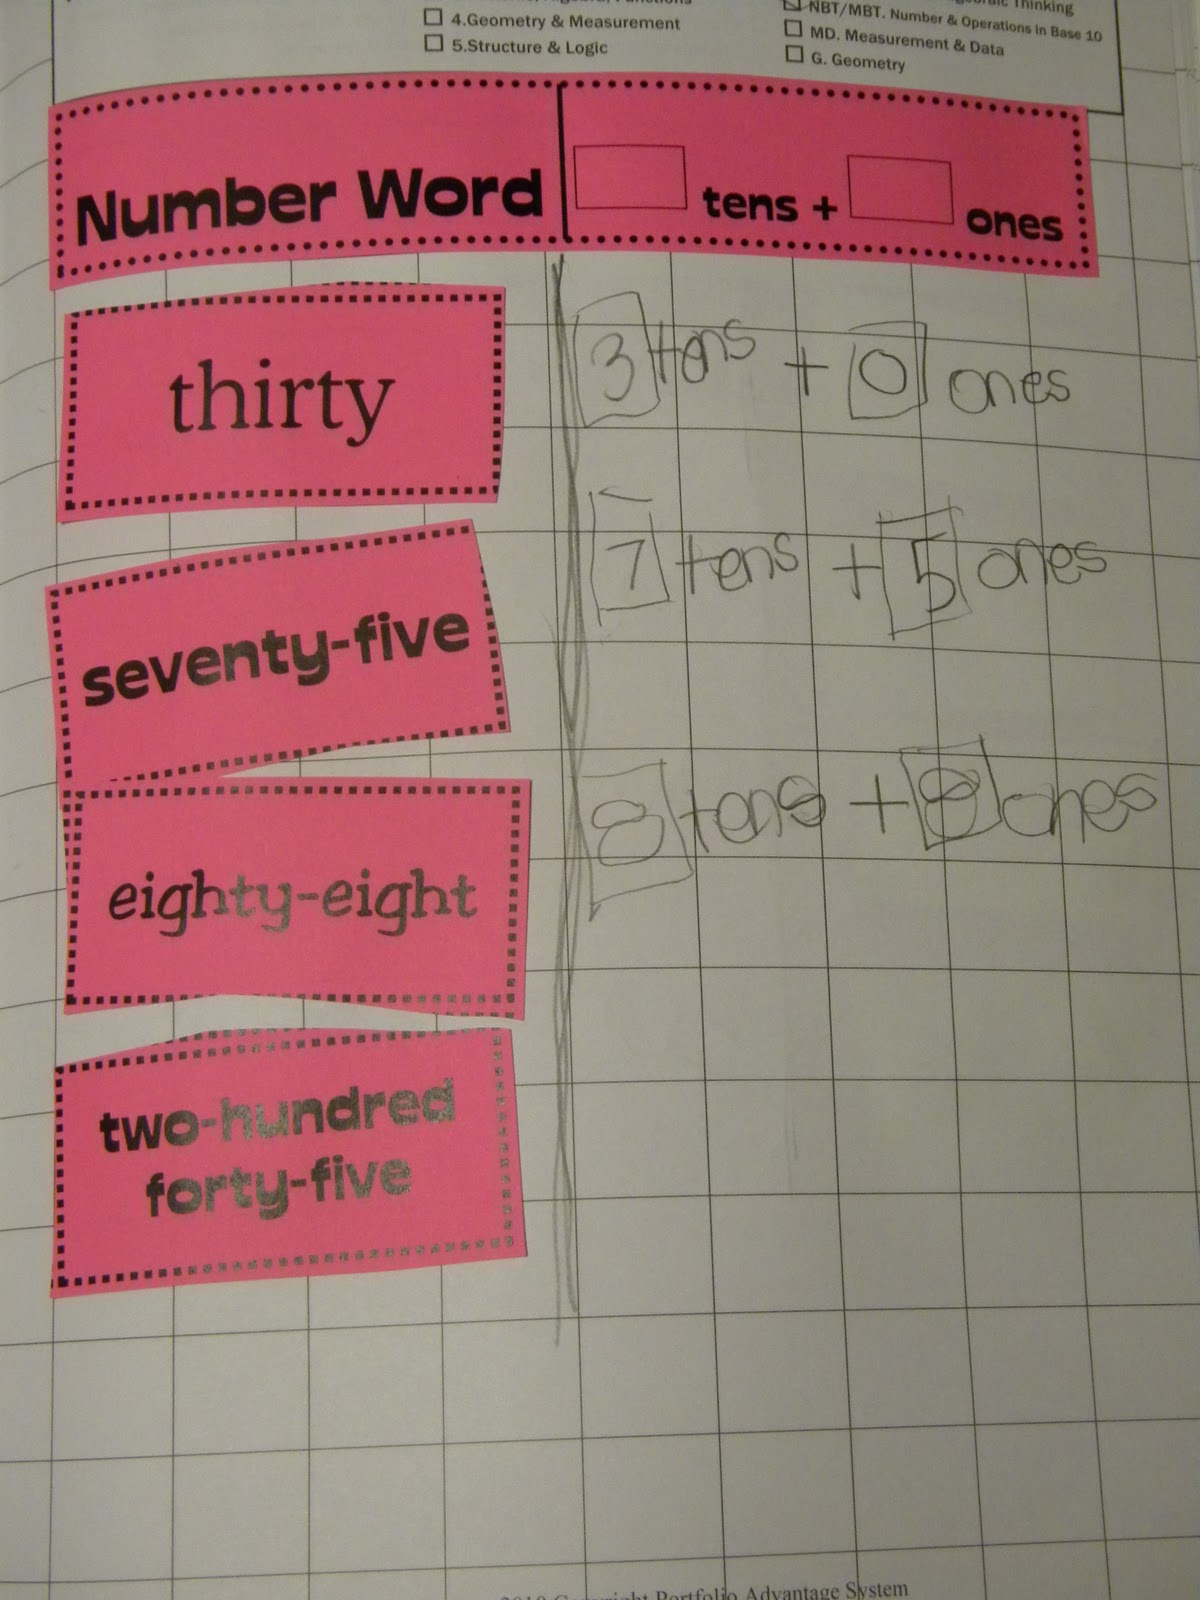 4.Geometry & Measurement
5.Structure & Logic
Thinking
NBT/MBT. Number & Operations in Base 10
MD. Measurement & Data
G. Geometry
Number Word tens + ones
thirty 3 tens + 0 ones
seventy-five 7 tens + 5 ones
eighty-eight 8 tens + 8 ones
two-hundred
forty-five
Portfolio Advantage System